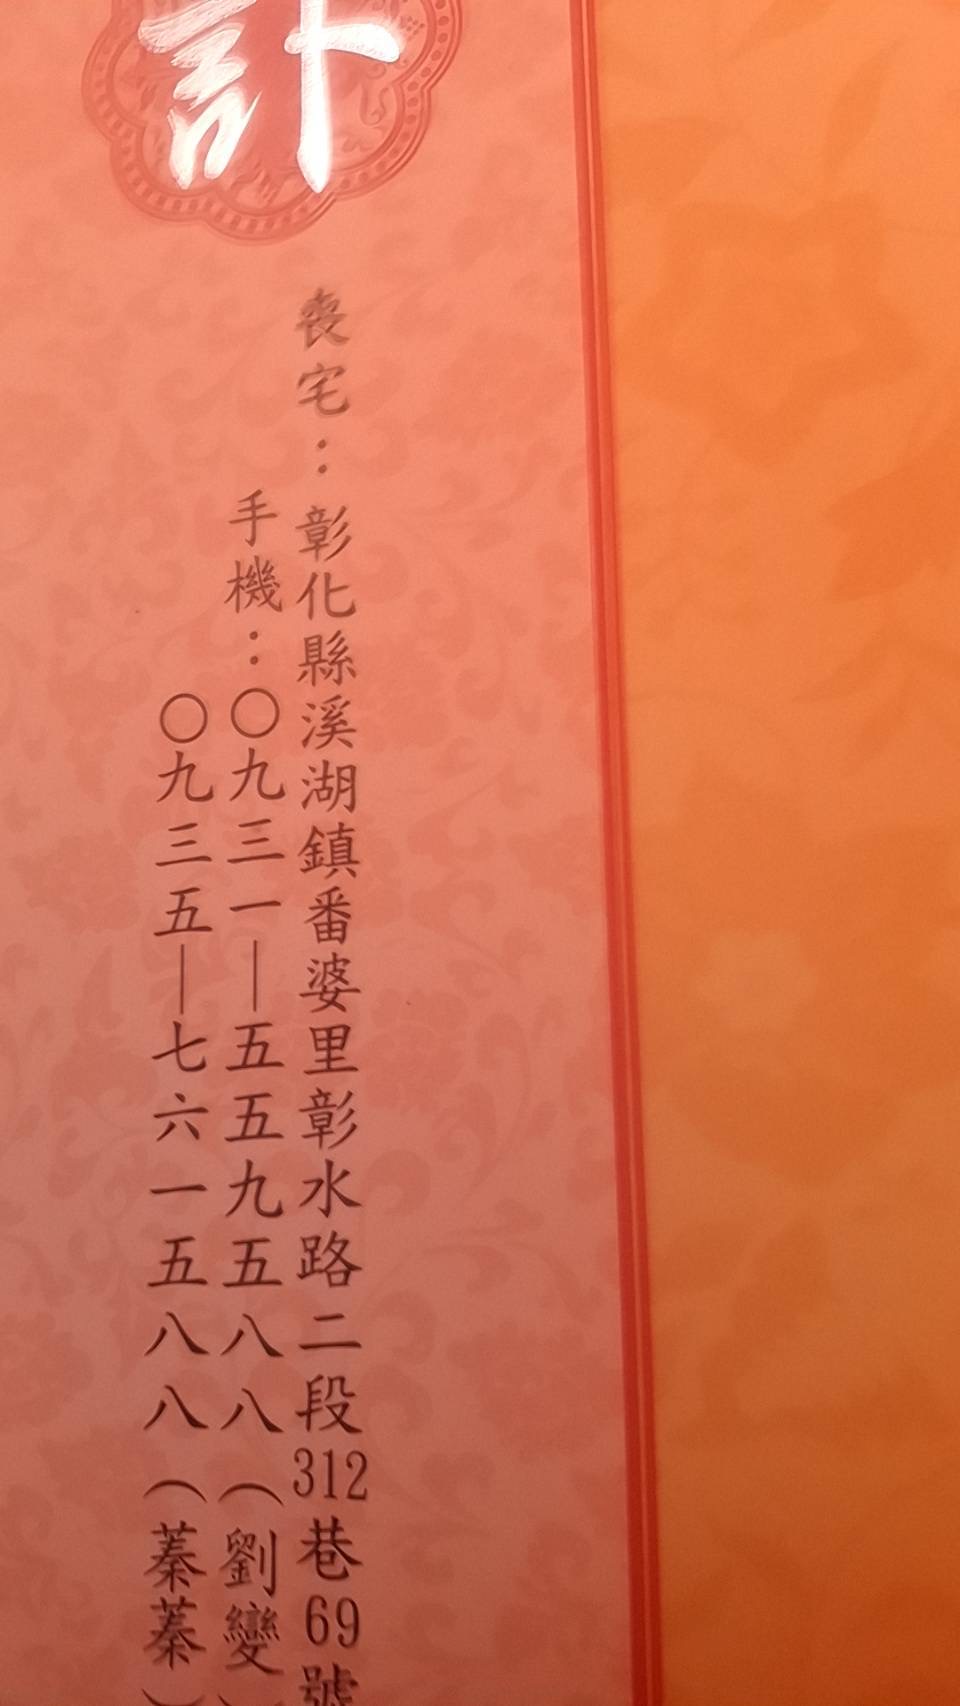 訃
喪宅：彰化縣溪湖鎮番婆里彰水路二段312巷69號
手機：〇九三一—五五九五八八（劉變）
〇九三五—七六一五八八（蓁蓁）